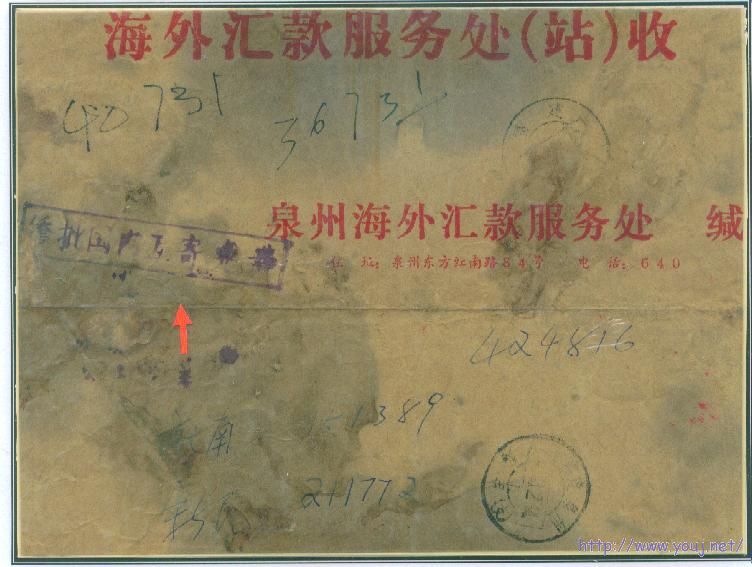 海外汇款服务处(站)收
40731
36731
泉州海外汇款服务处 缄
住 址：泉州东方红南路84号 电 话：640
侨批国内互寄
424816
南 151389
211772
http://www.youj.net/